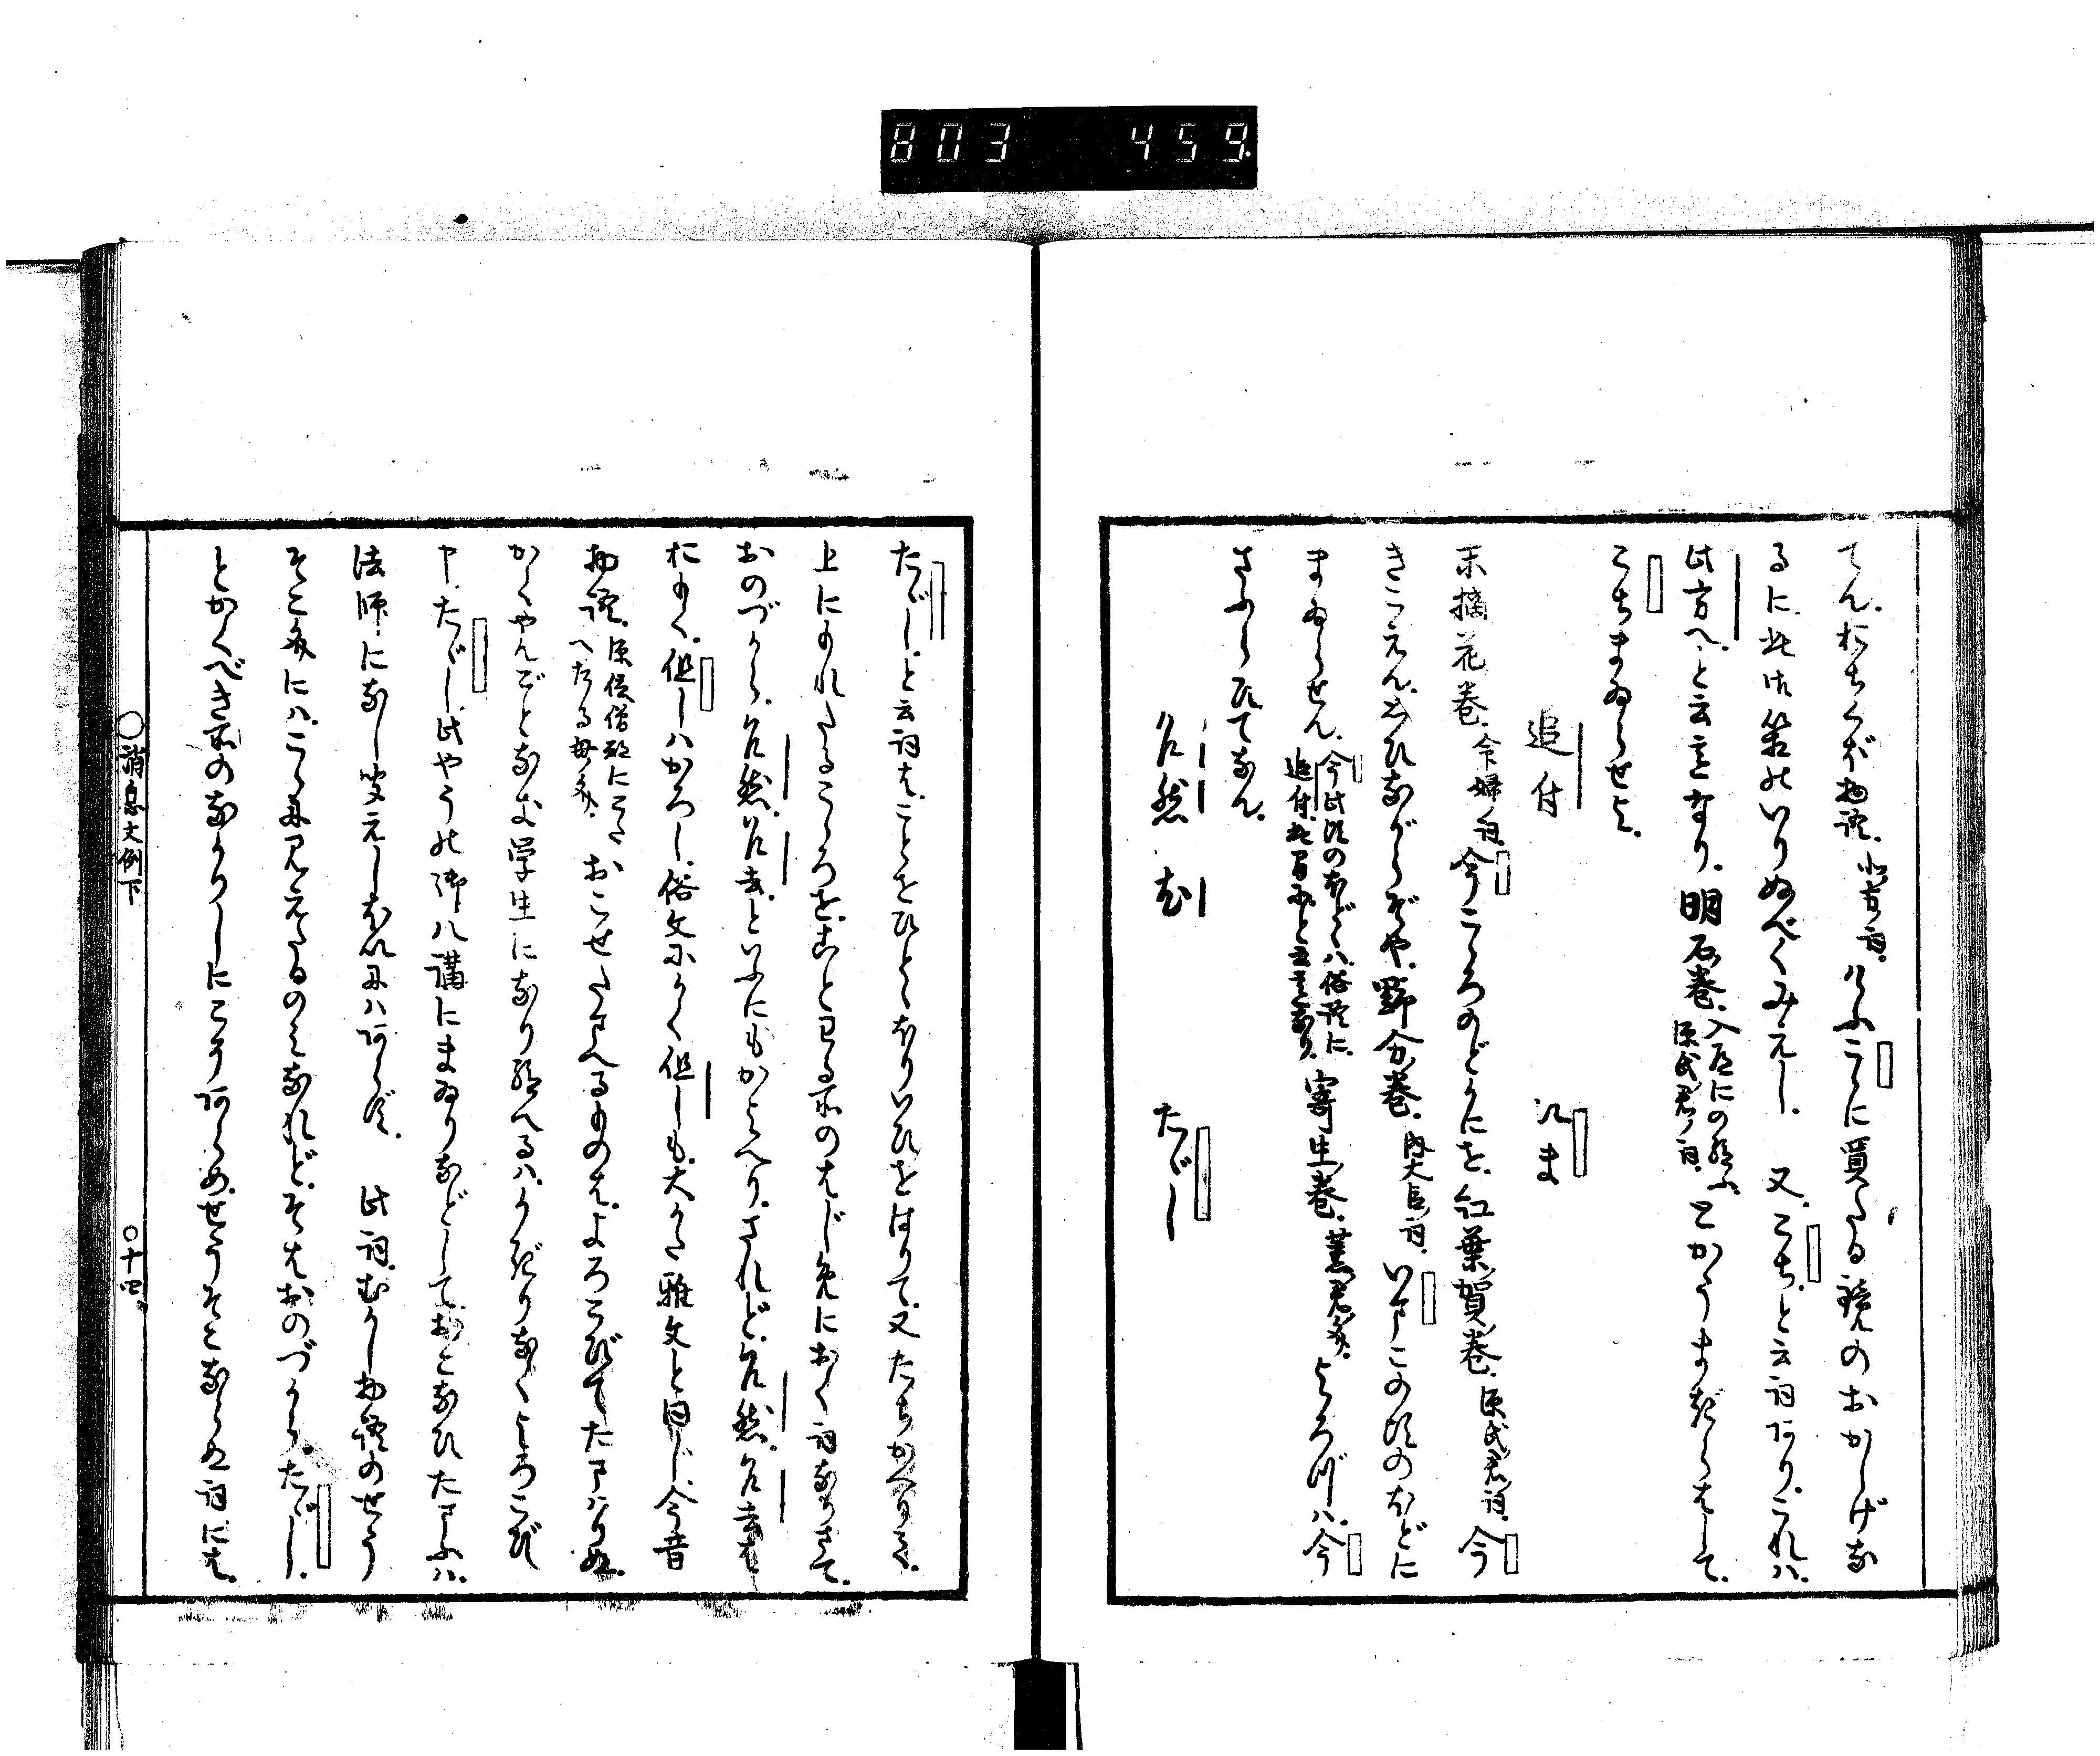 803 459
てん。おちくぼ物語。北方詞。けふこゝに買たる鏡のおかしげな
るに。此御筥のいりぬべくみえし。又。こち。と云詞あり。これハ。
此方へ。と云意なり。明石巻。入道にの給ふ源氏君ノ詞。とかうまぎらはして。
こちまゐらせよ。
追付 いま
末摘花巻。命婦詞。今こゝろのどかにを。紅葉賀巻。源氏君詞。今
きこえん。思ひながらぞや。野分巻。内大臣詞。いまこの頃のほどに
まゐらせん。今此頃のほどハ。俗語に。追付此間にと云意なり。寄生巻。薫君文。よろづハ。今
さふらひてなん。
乍然 尤 たゞし
たゞし。と云詞は。ことをひとゝほりいひをはりて。又たちかへりて。
上にもれたるこゝろを。ことわる所のはじめにおく詞なり。さて。
おのづから。乍然。乍去。といふにもかよへり。されど。乍然。乍去は
おもく。但しハかろし。俗文にかく但しも。大かた雅文と同じ。今昔
物語。源信僧都にこたへたる母文。おこせたまへるものは。よろこびてたまハりぬ。
かくやんごとなき学生になり給へるハ。かぎりなくよろこび
申。たゞし。此やうの御八講にまゐりなどして。おこなひたまふハ。
法師になし聞えしほいにハあらず。此詞。むかし物語のせう
そこ文にハ。こゝにみえたるのみなれど。そはおのづから。たゞし。
とかくべき所のなかりしにこそあらめ。せうそこならぬ詞には。
○消息文例下 ○十四。